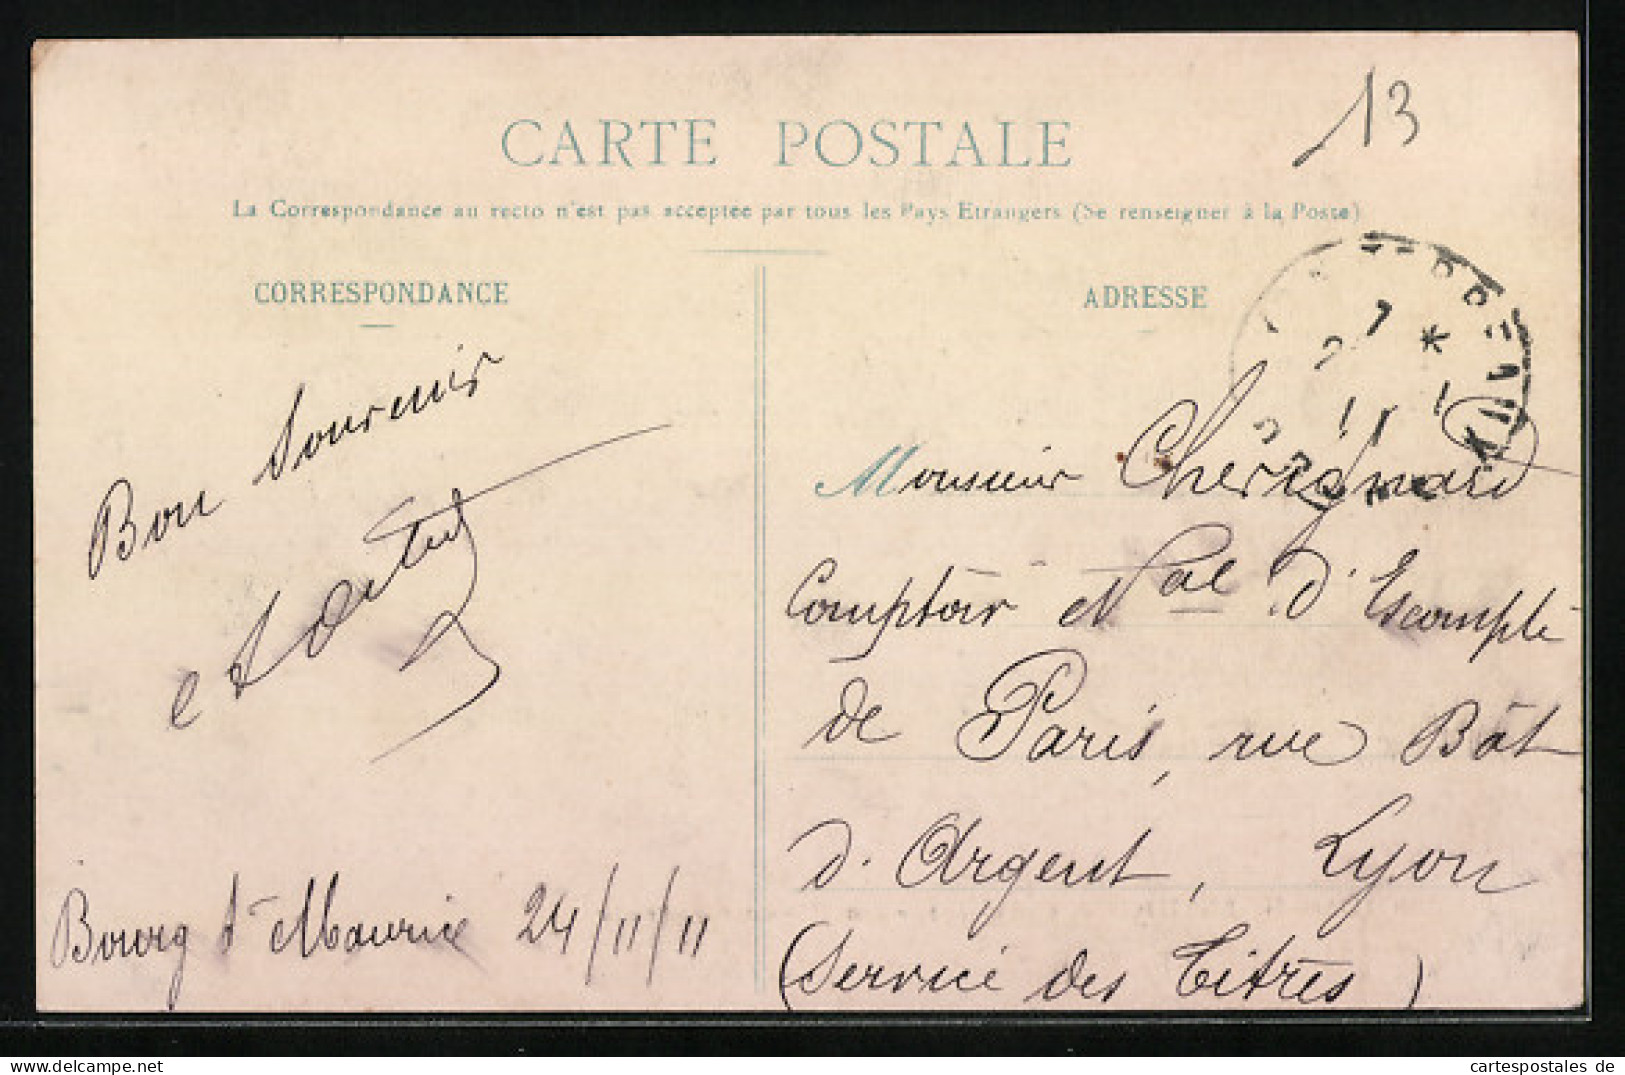 13
CARTE POSTALE
La Correspondance au recto n'est pas acceptée par tous les Pays Etrangers (Se renseigner à la Poste)
CORRESPONDANCE
Bon Souvenir
Bourg St Maurice 24/11/11
ADRESSE
Monsieur Cherignard
Comptoir Nal d'Escompte
de Paris, rue Bât
d'Argent, Lyon
(Service des Titres)
cartespostales de